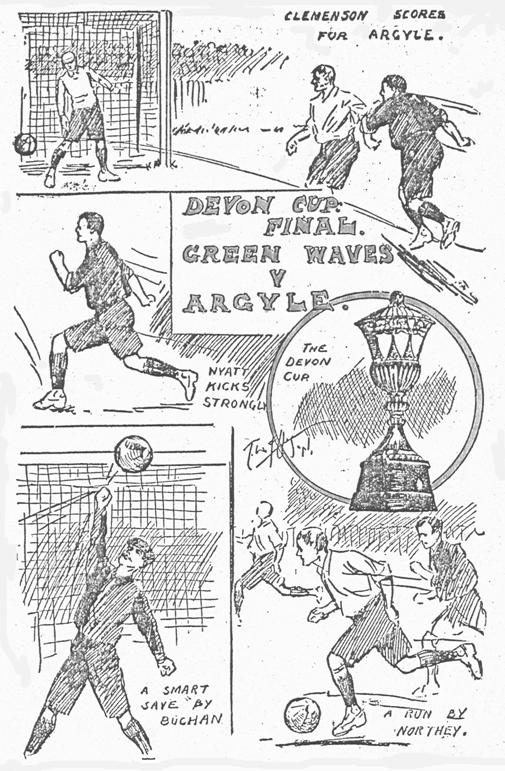 CLEMENSON SCORES
FOR ARGYLE.
DEVON CUP
FINAL.
GREEN WAVES
V
ARGYLE.
NYATT
KICKS
STRONGLY
THE
DEVON
CUP
A SMART
SAVE BY
BUCHAN
A RUN BY
NORTHEY.